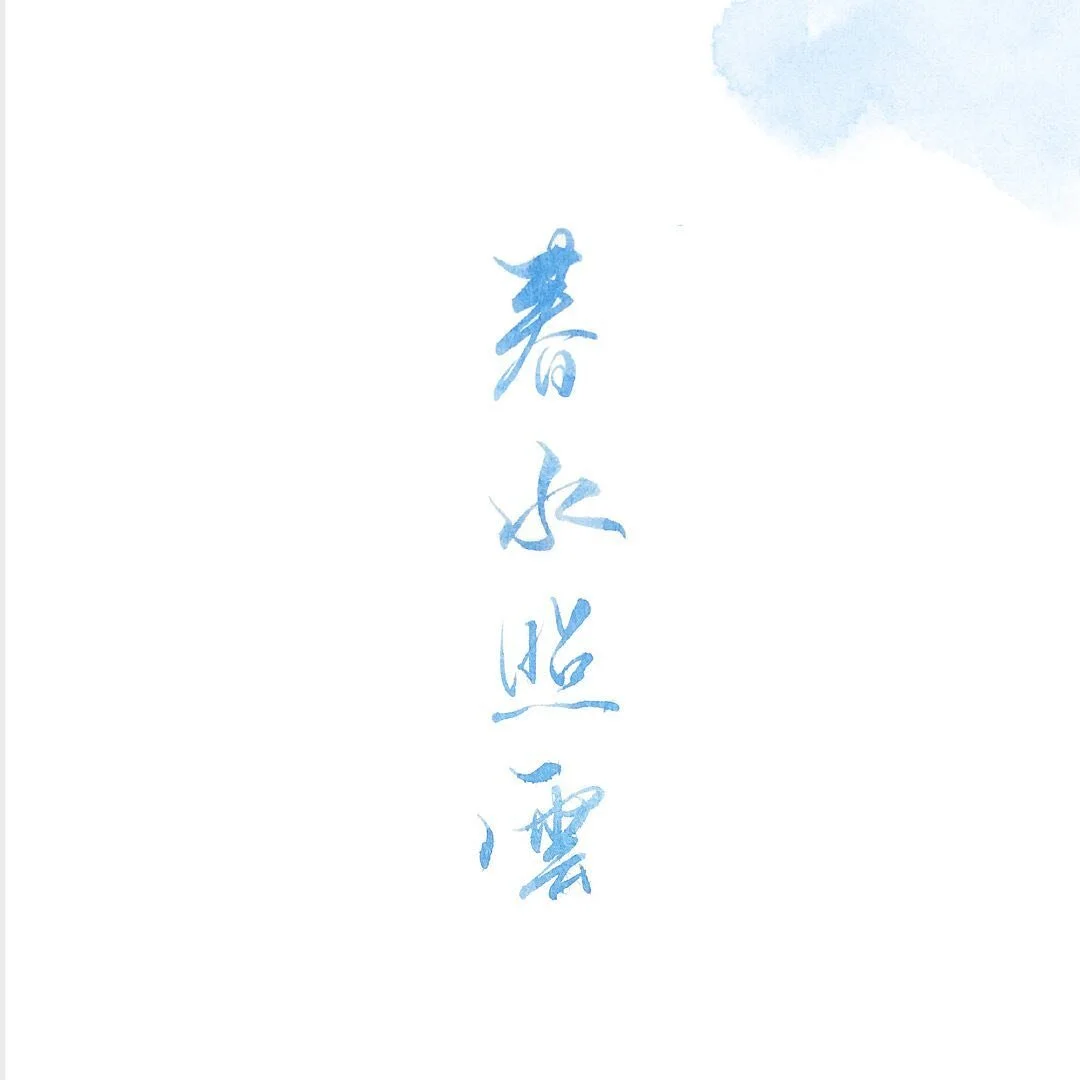 春水照雲